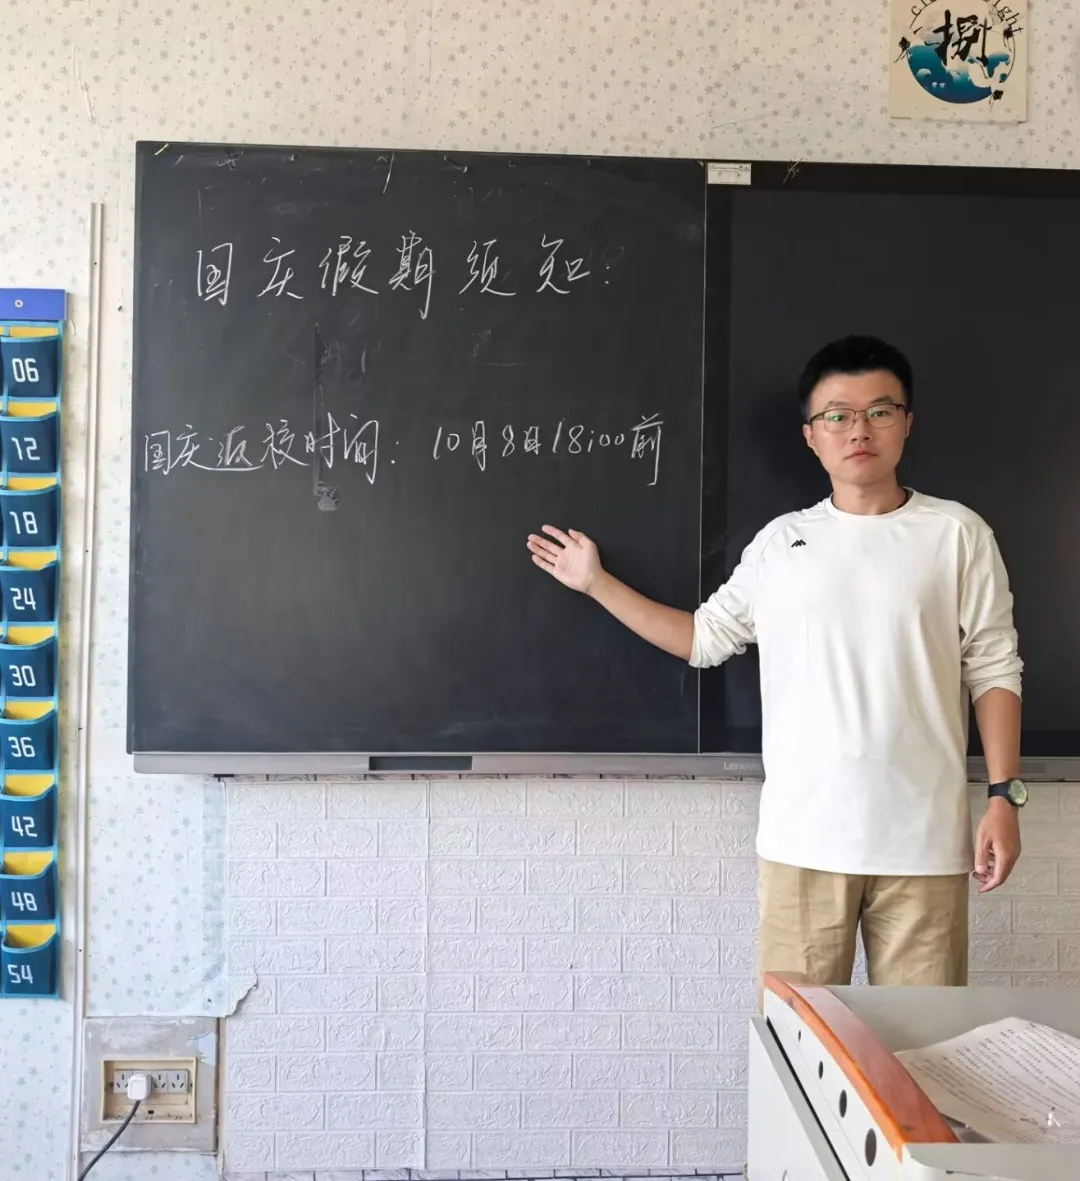 捌
国庆假期须知:
国庆返校时间: 10月8日18:00前
06
12
18
24
30
36
42
48
54